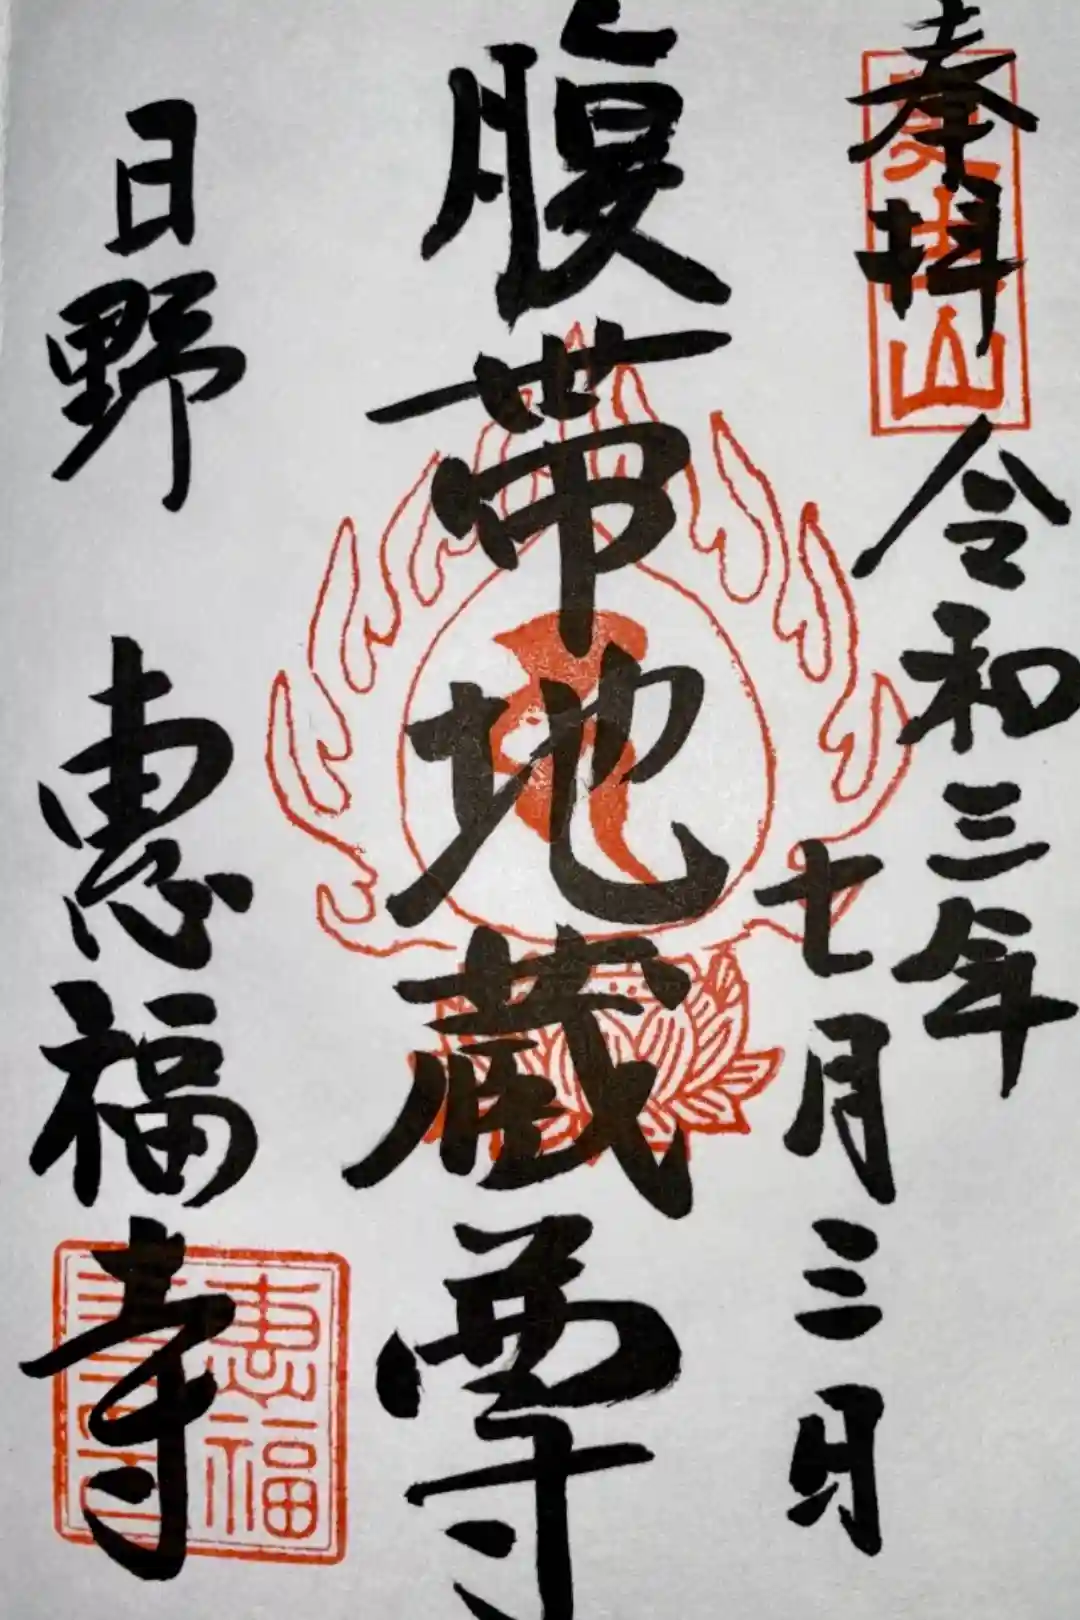 奉拝
令和三年
七月三日
腹帯地蔵尊
日野 恵福寺
山
恵福寺印